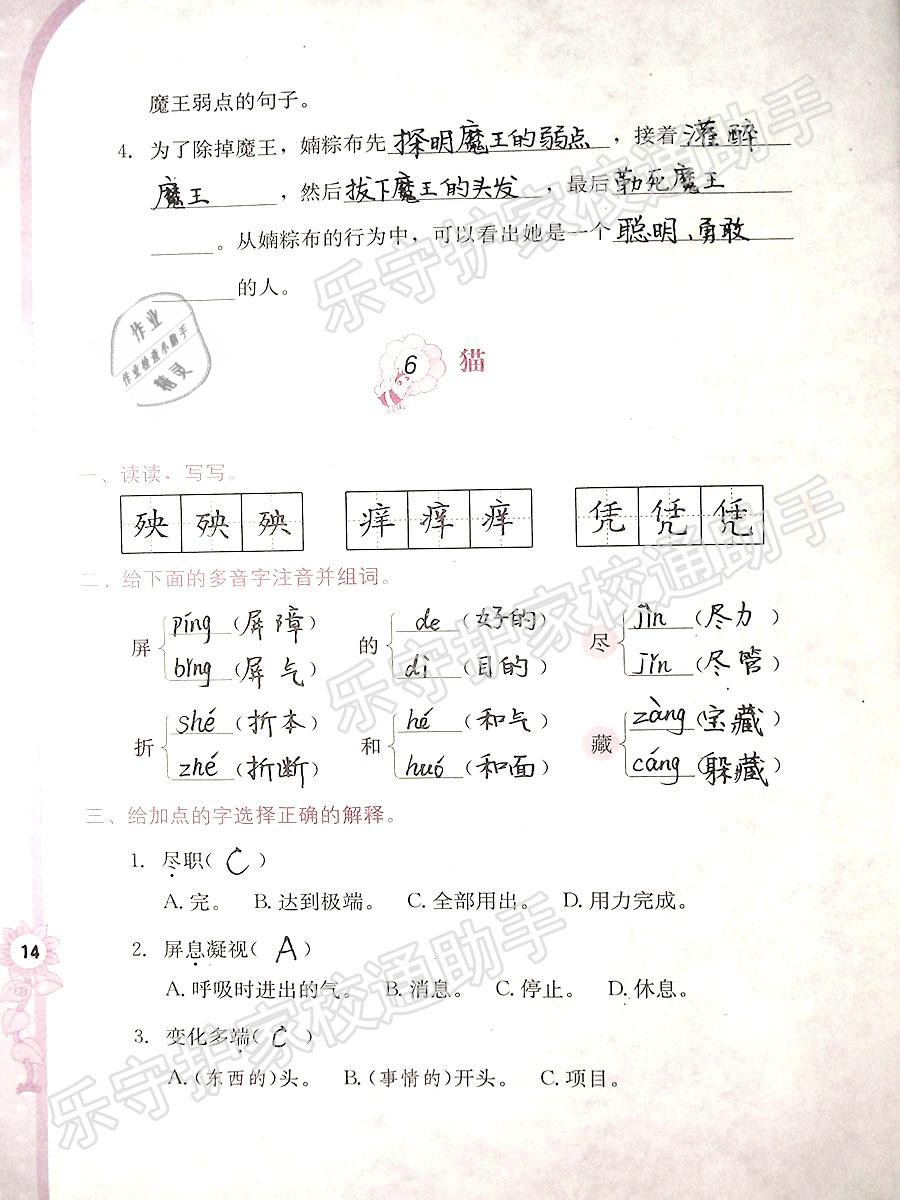 魔王弱点的句子。
4. 为了除掉魔王，婻粽布先探明魔王的弱点，接着灌醉
魔王，然后拔下魔王的头发，最后勒死魔王
。从婻粽布的行为中，可以看出她是一个聪明、勇敢
的人。
作业
作业检查小助手
精灵
6 猫
一、读读，写写。
殃 殃 殃 痒 痒 痒 凭 凭 凭
二、给下面的多音字注音并组词。
屏 píng（屏障） bǐng（屏气）
的 de（好的） dì（目的）
尽 jìn（尽力） jǐn（尽管）
折 shé（折本） zhé（折断）
和 hé（和气） huó（和面）
藏 zàng（宝藏） cáng（躲藏）
三、给加点的字选择正确的解释。
1. 尽职（C）
A. 完。 B. 达到极端。 C. 全部用出。 D. 用力完成。
2. 屏息凝视（A）
A. 呼吸时进出的气。 B. 消息。 C. 停止。 D. 休息。
3. 变化多端（C）
A.（东西的）头。 B.（事情的）开头。 C. 项目。
14
乐守护家校通助手
乐守护家校通助手
乐守护家校通助手